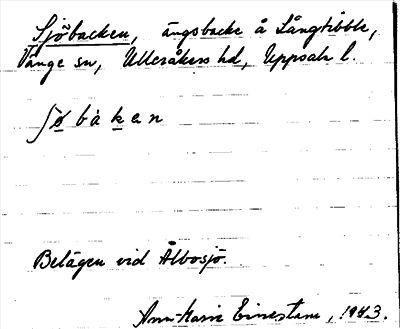 Sjöbacken, ängsbacke å Långtibble,
Vänge sn, Ulleråkers hd, Uppsala l.
ʃøbàken
Belägen vid Ålbosjö.
Ann-Marie Einestam, 1943.